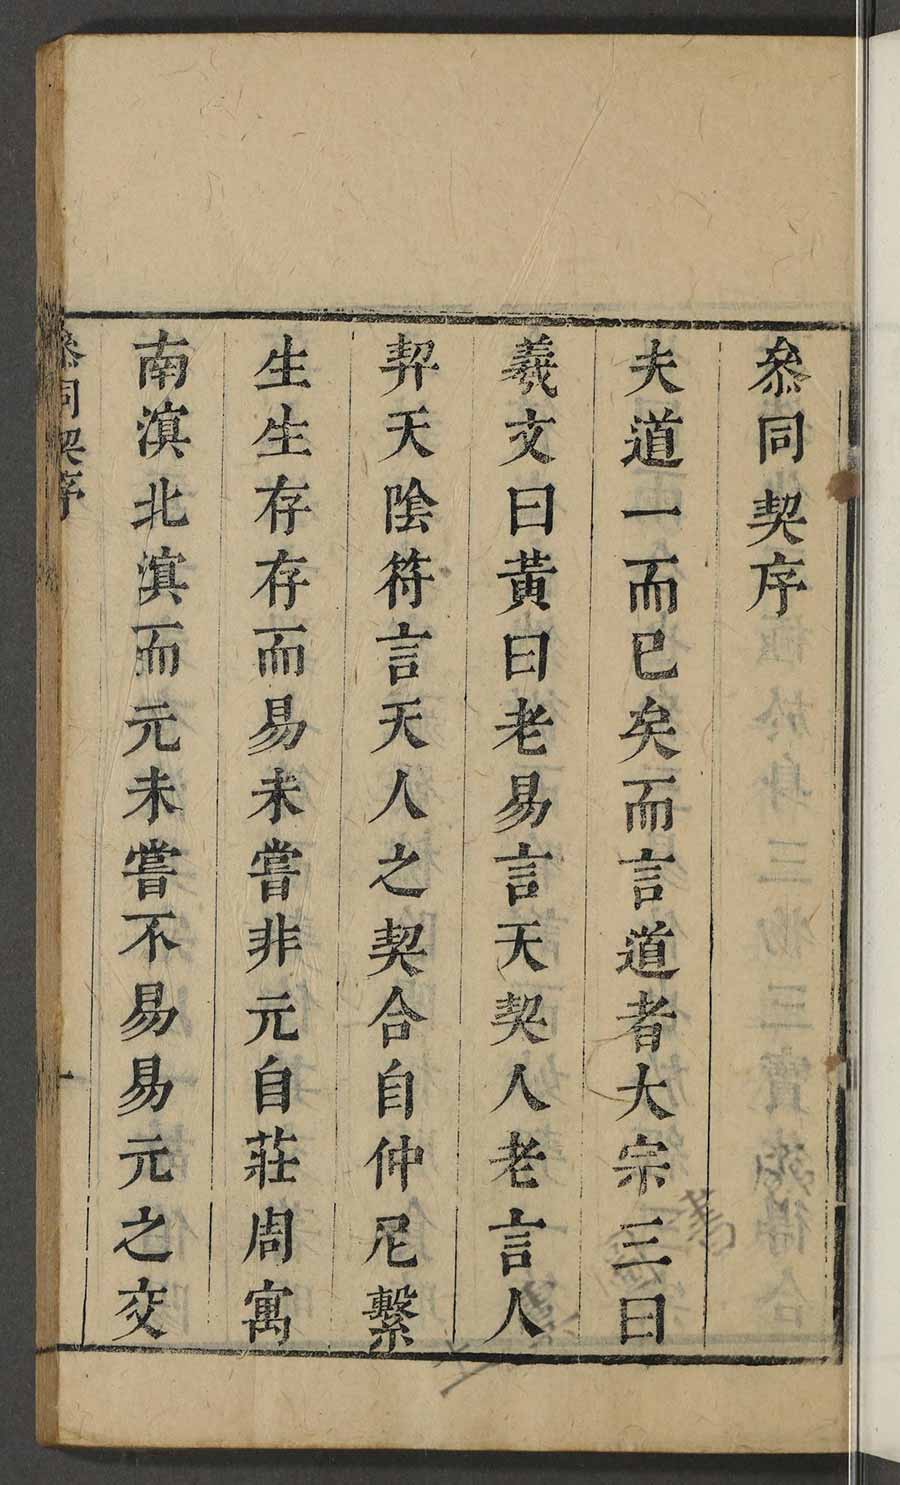 叅同契序
夫道一而已矣而言道者大宗三曰
羲文曰黃曰老易言天契人老言人
契天陰符言天人之契合自仲尼繫
生生存存而易未嘗非元自莊周寓
南溟北溟而元未嘗不易易元之交
叅同契序
一